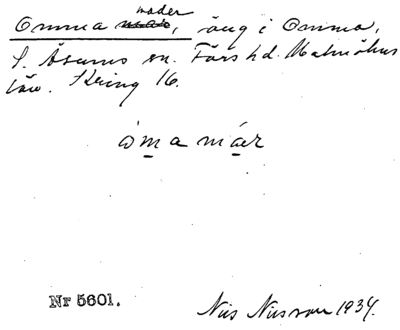 Omma mader, äng i Omma,
S. Åsums sn. Färs hd. Malmöhus
län. Skring 16.
òmamáer
Nr 5601.
Nils Nilsson 1934.